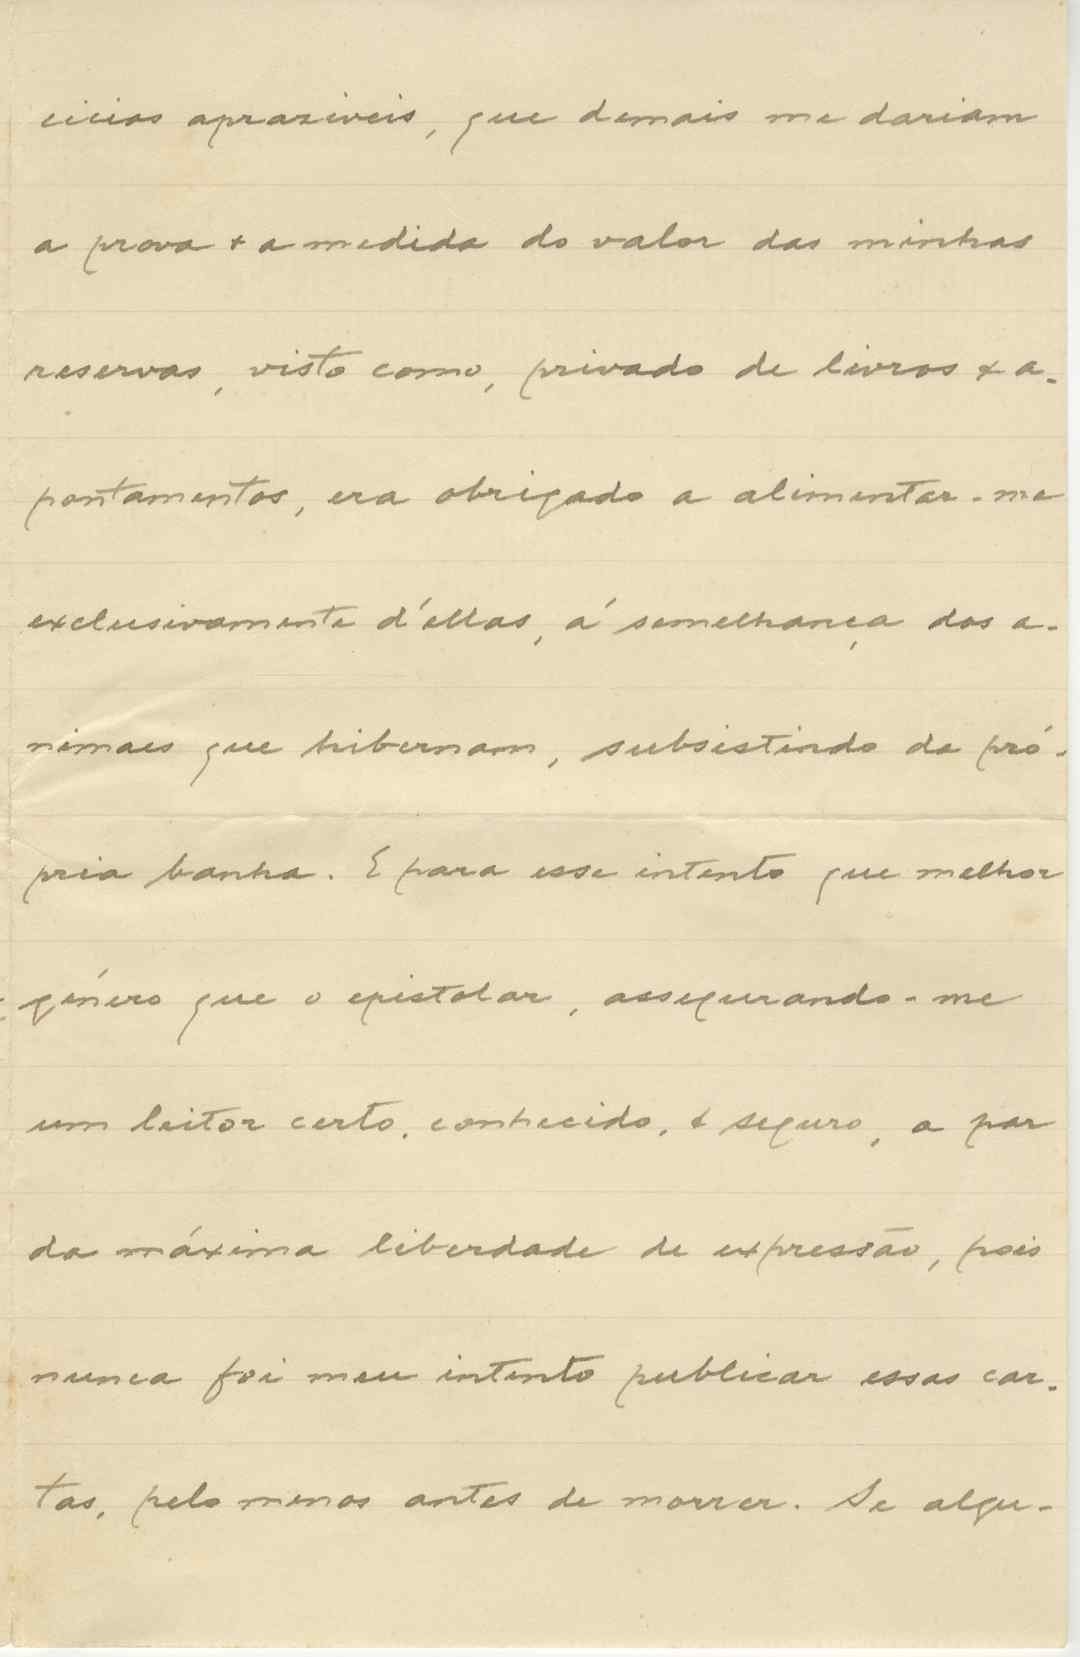 cicios apraziveis, que demais me dariam
a prova & a medida do valor das minhas
reservas, visto como, privado de livros & a-
pontamentos, era obrigado a alimentar-me
exclusivamente d'ellas, á semelhança dos a-
nimaes que hibernam, subsistindo da pró-
pria banha. E para esse intento que melhor
género que o epistolar, assegurando-me
um leitor certo, conhecido, & seguro, a par
da máxima liberdade de expressão, pois
nunca foi meu intento publicar essas car-
tas, pelo menos antes de morrer. Se algu-